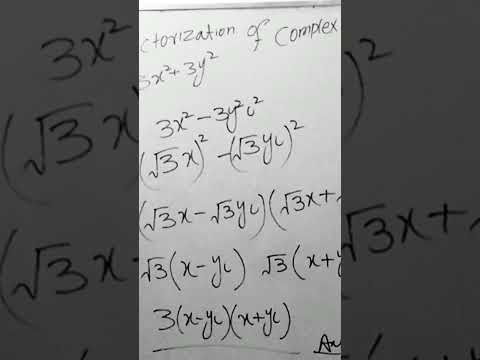 ctorization of Complex
3x²+3y²
3x² - 3y²ι²
(√3x)² - (√3yι)²
(√3x - √3yι)(√3x+
√3(x-yι) √3(x+y
3(x-yι)(x+yι)
An